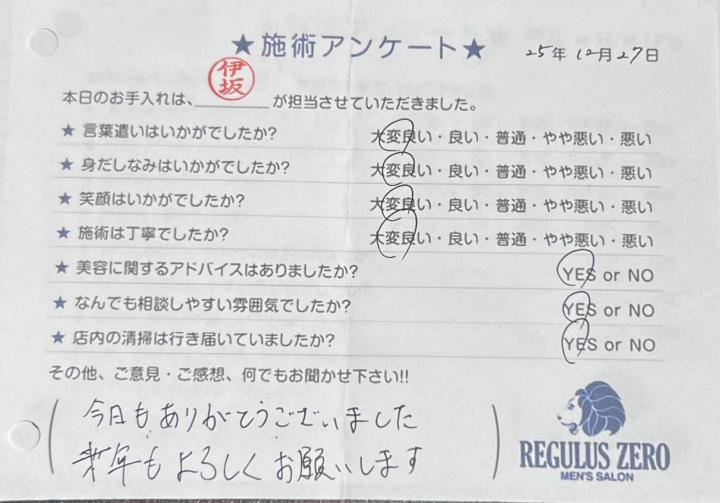 ★施術アンケート★ 25年12月27日
伊坂
本日のお手入れは、________が担当させていただきました。
★ 言葉遣いはいかがでしたか? 大変良い・良い・普通・やや悪い・悪い
★ 身だしなみはいかがでしたか? 大変良い・良い・普通・やや悪い・悪い
★ 笑顔はいかがでしたか? 大変良い・良い・普通・やや悪い・悪い
★ 施術は丁寧でしたか? 大変良い・良い・普通・やや悪い・悪い
★ 美容に関するアドバイスはありましたか? YES or NO
★ なんでも相談しやすい雰囲気でしたか? YES or NO
★ 店内の清掃は行き届いていましたか? YES or NO
その他、ご意見・ご感想、何でもお聞かせ下さい!!
今日もありがとうございました
来年もよろしくお願いします
REGULUS ZERO
MEN'S SALON